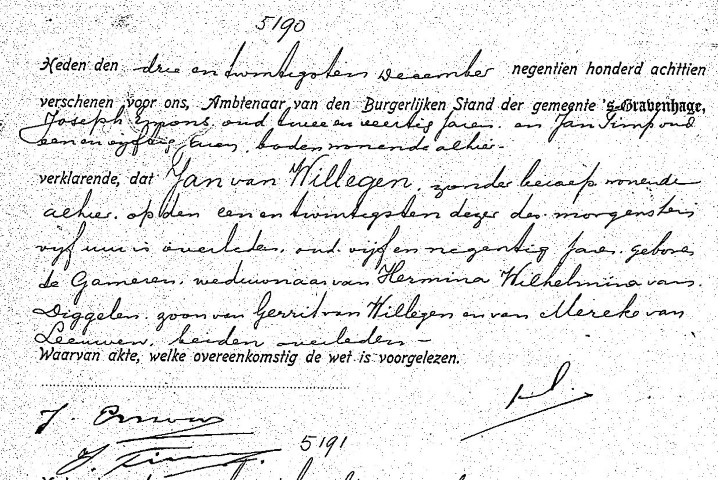 5190
Heden den drie en twintigsten December negentien honderd achttien
verschenen voor ons, Ambtenaar van den Burgerlijken Stand der gemeente 's-Gravenhage,
Joseph Emons, oud twee en veertig jaren, en Jan Timp oud
een en vijftig jaren, boden wonende alhier -
verklarende, dat Jan van Willegen, zonder beroep wonende
alhier, op den een en twintigsten dezer des morgens ten
vijf uur is overleden, oud vijf en negentig jaren, geboren
te Gameren, weduwnaar van Hermina Wilhelmina van
Diggelen, zoon van Gerrit van Willegen en van Mereke van
Leeuwen, beiden overleden -
Waarvan akte, welke overeenkomstig de wet is voorgelezen.
J. Emons
J. Timp
5191